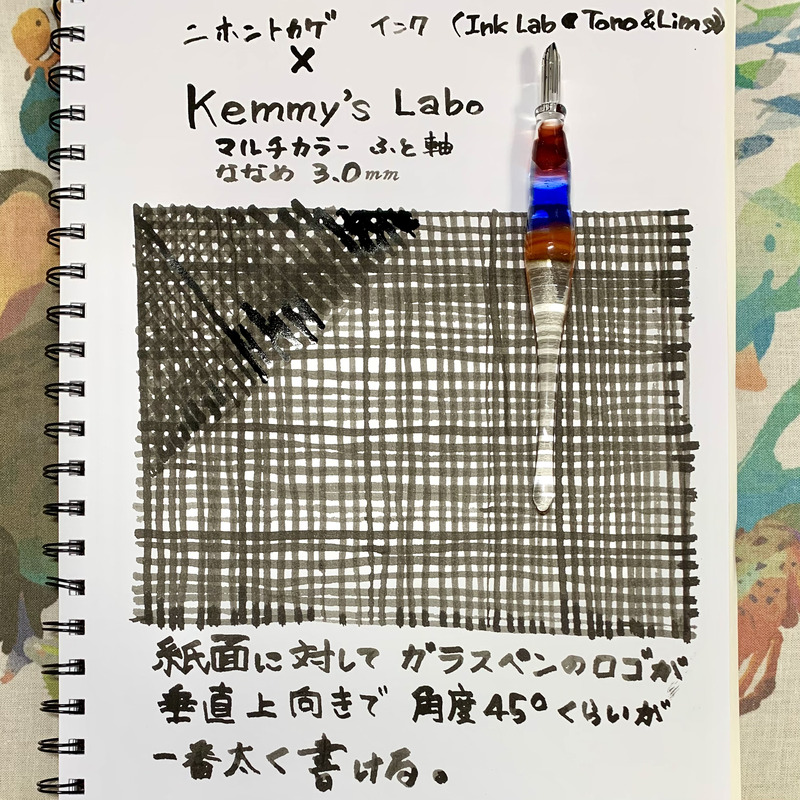 ニホントカゲ インク (Ink Lab Tono&Lims)
×
Kemmy's Labo
マルチカラー ふと軸
ななめ 3.0mm
紙面に対して ガラスペンのロゴが
垂直上向きで 角度45°くらいが
一番太く書ける。